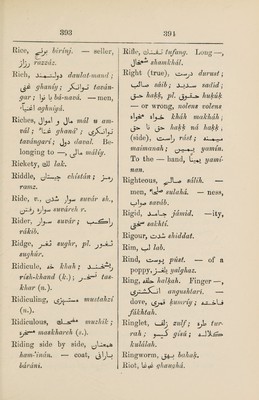 393
Rice, برنج birinj. — seller,
رزّاز razzáz.
Rich, دولتمند daulat-mand;
غنی ghaníy; توانگر tawán-
gar; با نوا bá-nawá. — men,
اغنیا aghniyá.
Riches, مال or اموال mál or am-
wál; غنا ghaná; توانگری
tawángarí; دول dawal. Be-
longing to —, مالی málíy.
Rickety, لق lak.
Riddle, چیستان chistán; رمز
ramz.
Ride, v., سوار شدن suvár sh.,
سواره رفتن suváreh r.
Rider, سوار suvár; راکب
rákib.
Ridge, ثغر sughr, pl. ثغور
sughúr.
Ridicule, خه khah; ریشخند
rish-khand (k.); تسخر tas-
khar (n.).
Ridiculing, مستهزئ mustahzí
(n.).
Ridiculous, مضحک muzhik;
مسخره maskhareh (s.).
Riding side by side, همعنان
ham-'inán. — coat, بارانی
bárání.
394
Rifle, تفنگ tufang. Long —,
شمخال shamkhál.
Right (true), درست durust;
صائب sáib; سدید sadíd;
حق hakk, pl. حقوق hukúk
— or wrong, nolens volens
خواه مخواه kháh makháh;
حق نا حق hakk ná hakk,
(side), راست rást; میمنه
maimanah; یمین yamín.
To the — hand, یمنا yamí-
nan.
Righteous, صالح sálih. —
men, صلحا sulahá. — ness,
صواب saváb.
Rigid, جامد jámid. —ity,
سختی sakhti.
Rigour, شدت shiddat.
Rim, لب lab.
Rind, پوست púst. — of a
poppy, یلغز yalghaz.
Ring, حلقه halkah. Finger —,
انگشتری angushtarí. —
dove, قمری kumríy; فاخته
fákhtah.
Ringlet, زلف zulf; طره tur-
rah; گیسو gísú; کلاله
kulálah.
Ringworm, بهق bahak.
Riot, غوغا ghaughá.